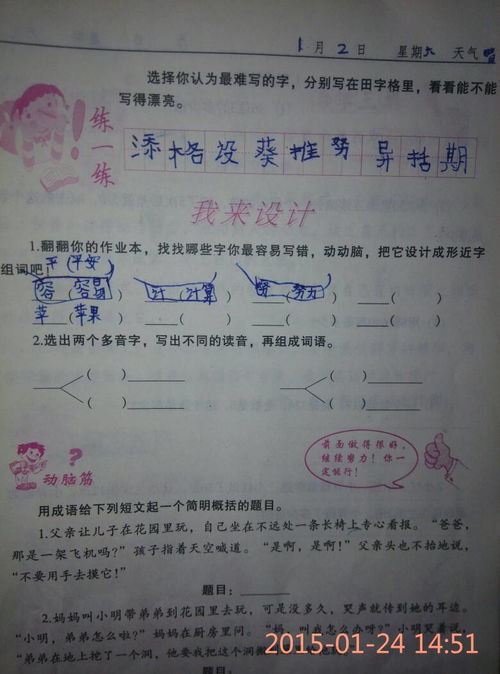 1月2日 星期六 天气晴
选择你认为最难写的字，分别写在田字格里，看看能不能
写得漂亮。
练一练
添格没葵推努异括期
我来设计
1.翻翻你的作业本，找找哪些字你最容易写错，动动脑，把它设计成形近字
组词吧！
平（平安
容 容易） 计（计算） 努（努力） （ ）
苹（苹果） （ ） （ ） （ ）
2.选出两个多音字，写出不同的读音，再组成词语。
（ ） （ ）
（ ） （ ）
前面做得很好，
继续努力！你一
定能行！
动脑筋
用成语给下列短文起一个简明概括的题目。
1.父亲让儿子在花园里玩，自己坐在不远处一条长椅上专心看报。“爸爸，
那是一架飞机吗？”孩子指着天空喊道。“是啊，是啊！”父亲头也不抬地说，
“不要用手去摸它！”
题目：
2.妈妈叫小明带弟弟到花园里去玩，可是没多久，哭声就传到她的耳边。
“小明，弟弟怎么啦？”妈妈在厨房里问。“妈，叫我怎么办呀？”小明哭着说，
“弟弟在地上挖了一个洞，他要我把这个洞搬
题目：
2015-01-24 14:51